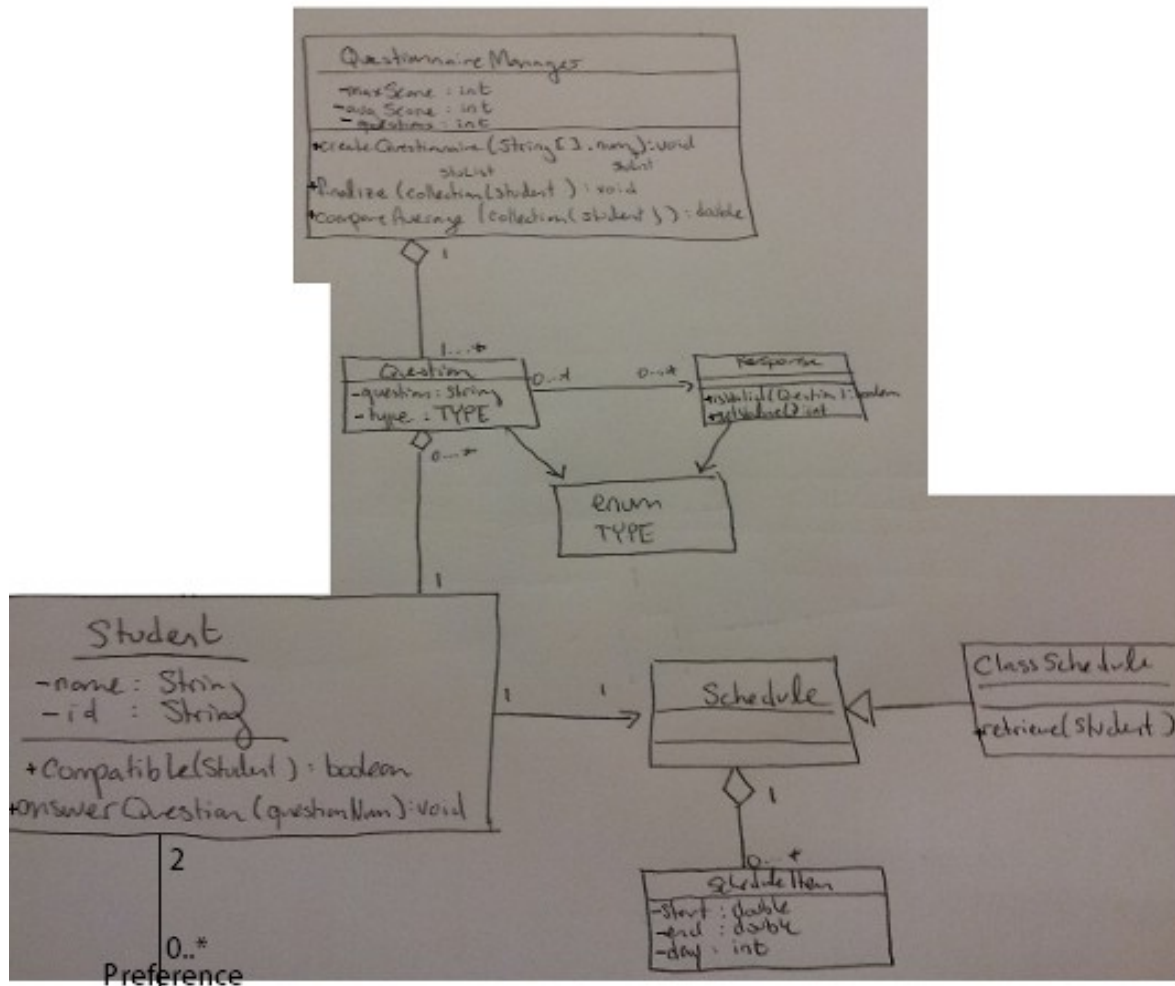 QuestionnaireManager
-maxScore : int
-avg Score : int
-questions : int
+createQuestionnaire(String[], num):void
stuList
stuList
+finalize (collection(student) : void
+compareAverage (collection(student)) : double
1
1...*
Question
-question: String
-type : TYPE
0...*
0...*
Response
+isValid(Question): boolean
+getValue() int
0...*
enum
TYPE
1
Student
-name : String
-id : String
+Compatible(Student) : boolean
+answerQuestion (questionNum):void
1
1
Schedule
ClassSchedule
+retrieve(Student)
1
0...*
ScheduleItem
-start : double
-end : double
-day : int
2
0..*
Preference